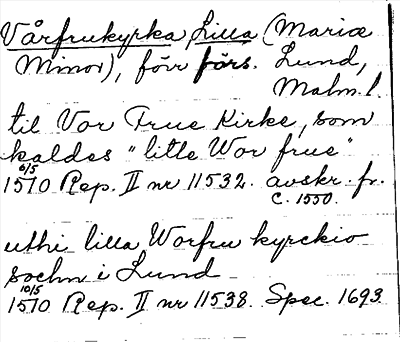 Vårfrukyrka, Lilla (Mariæ
Minor), förr förs. Lund,
Malm. l.
til Vor Frue Kirke, som
kaldes "litle Wor frue"
6/5
1510 Rep. II nr 11532. avskr. fr.
c. 1550.
uthi lilla Worfru kyrckio
sochn i Lund
10/5
1510 Rep. II nr 11538. Spec. 1693